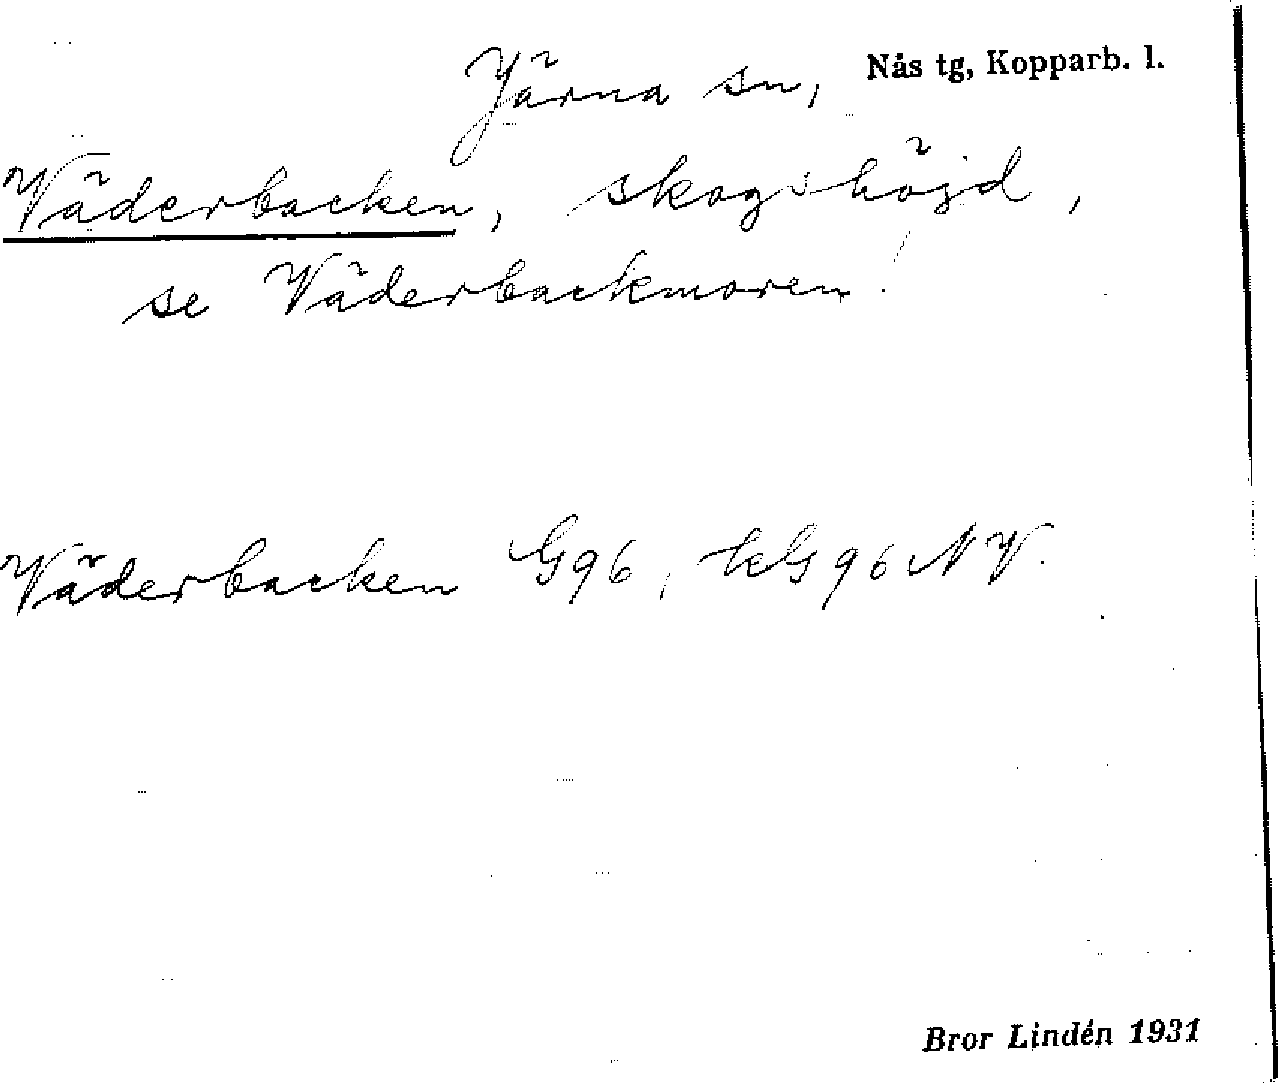 Järna sn, Nås tg, Kopparb. l.
Väderbacken, skogshöjd,
se Väderbackmoren!
Väderbacken G96, kG96NV.
Bror Lindén 1931